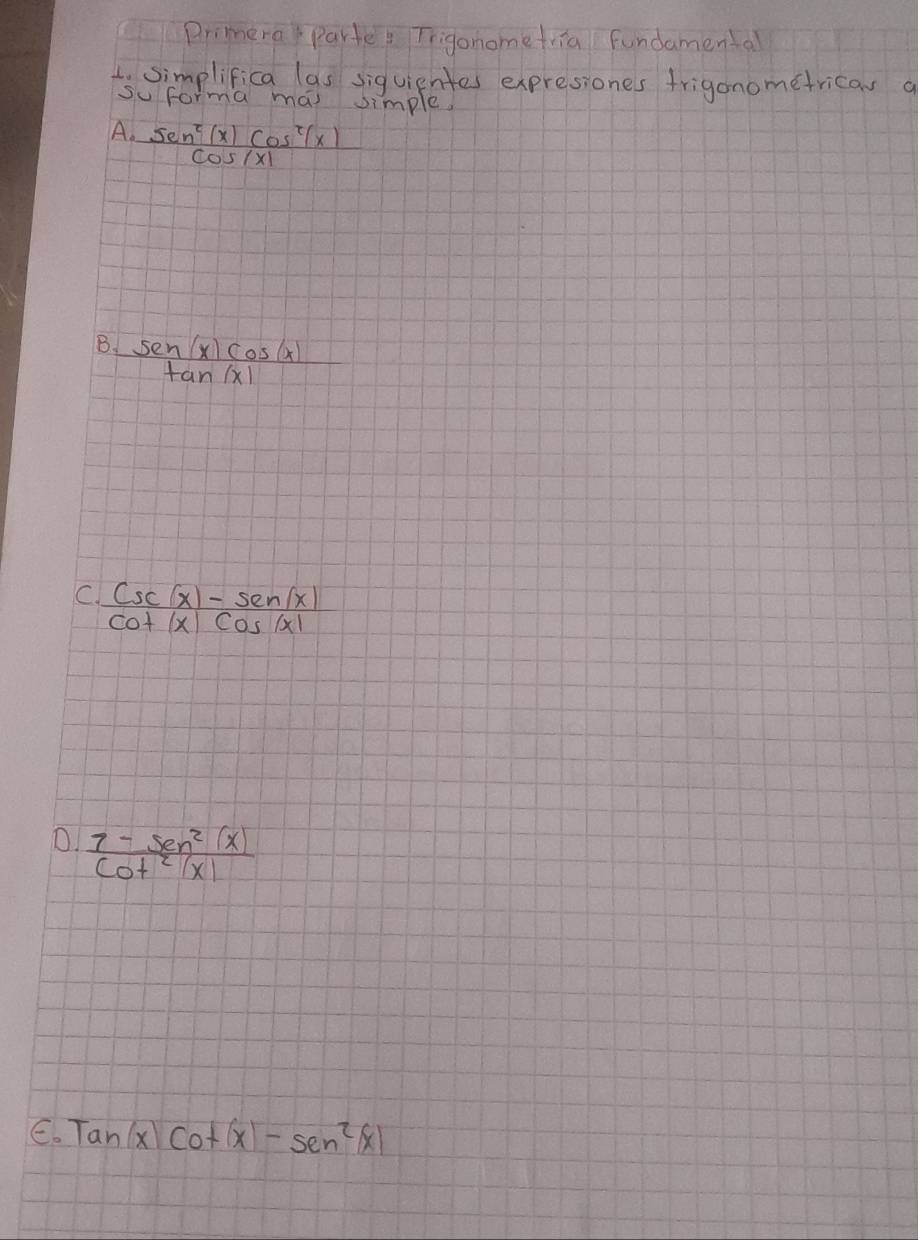 Primera parte: Trigonometría Fundamental
1. Simplifica las siguientes expresiones trigonométricas a
su forma más simple.
A. sen²(x) cos²(x)
cos(x)
B. sen(x) cos(x)
tan(x)
C. Csc(x) - sen(x)
cot(x) cos(x)
D. 1 - sen²(x)
Cot²(x)
E. Tan(x) Cot(x) - sen²(x)